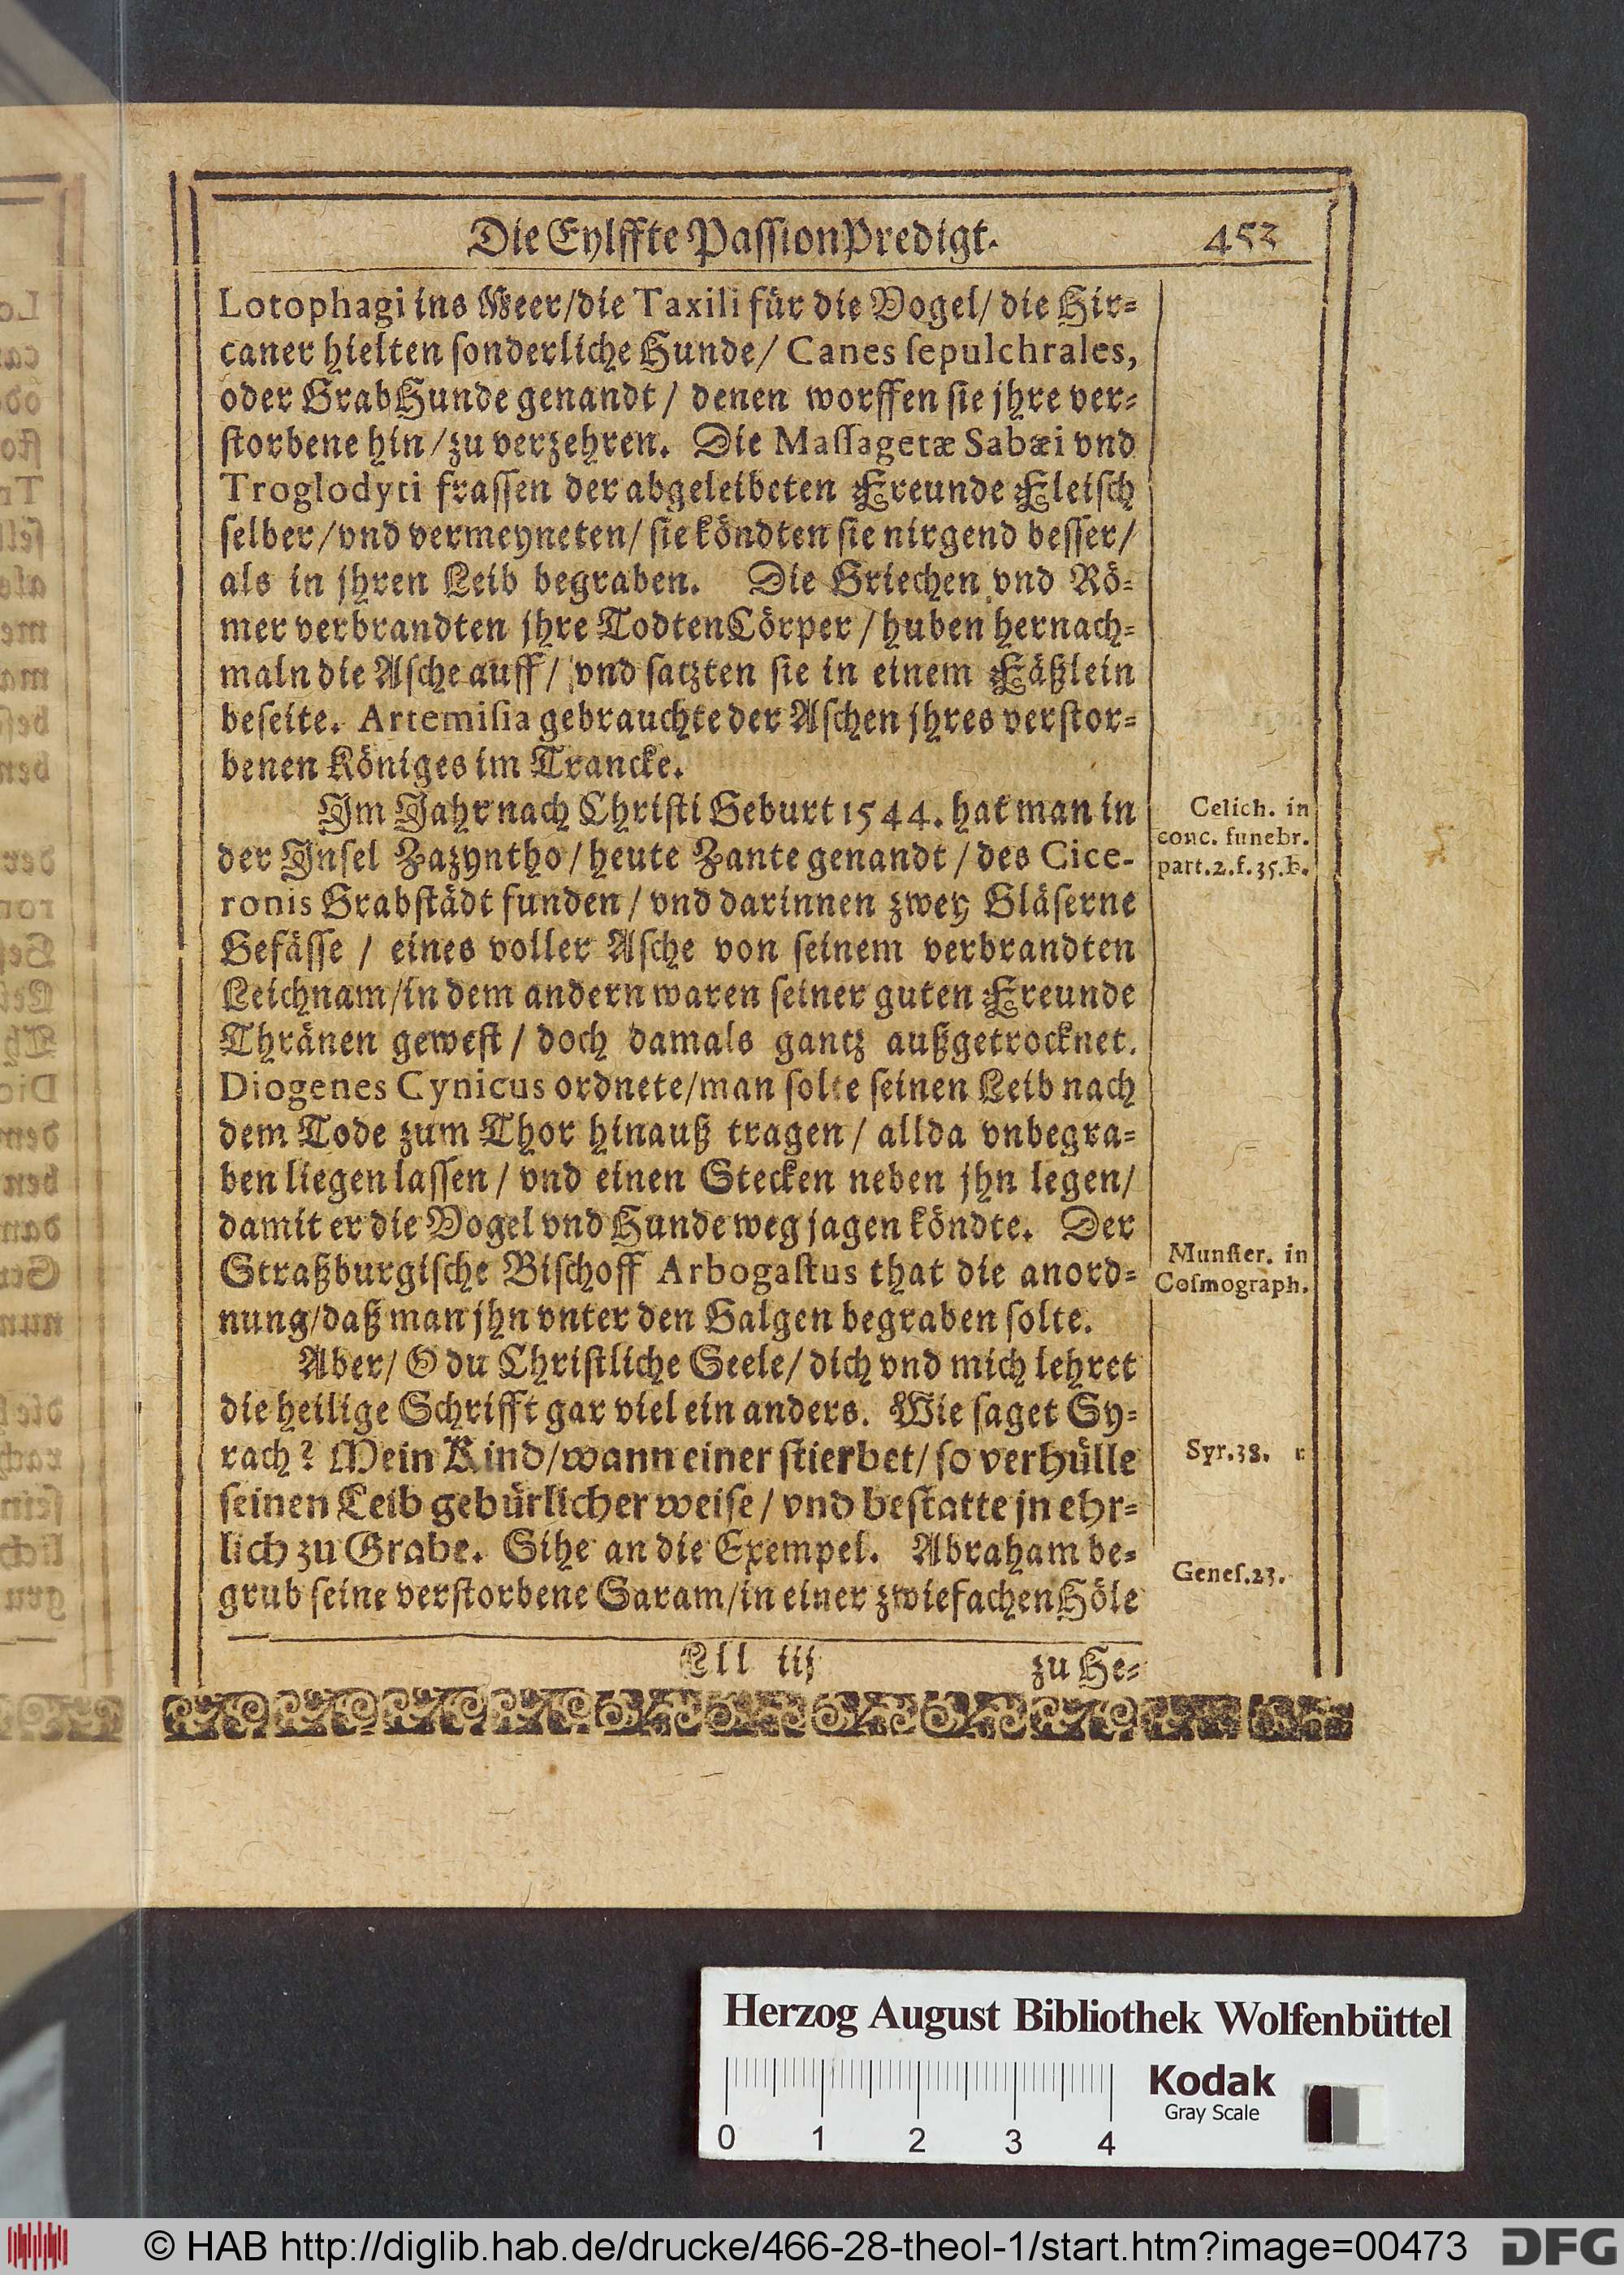 Die Eylffte PassionPredigt. 453
Lotophagi ins Meer/die Taxili für die Vogel/ die Hir⸗
caner hielten ſonderliche Hunde/ Canes ſepulchrales,
oder GrabHunde genandt/ denen worffen ſie jhre ver⸗
ſtorbene hin/zu verzehren. Die Maſſagetæ Sabæi vnd
Troglodyti fraſſen der abgeleibeten Freunde Fleiſch
ſelber/vnd vermeyneten/ ſie köndten ſie nirgend beſſer/
als in jhren Leib begraben. Die Griechen vnd Rö⸗
mer verbrandten jhre TodtenCörper/huben hernach⸗
maln die Aſche auff/ vnd ſatzten ſie in einem Fäßlein
beſeite. Artemiſia gebrauchte der Aſchen jhres verſtor⸗
benen Königes im Trancke.
Im Jahr nach Chriſti Geburt 1544. hat man in
der Inſel Zazyntho/heute Zante genandt/des Cice-
ronis Grabſtädt funden/ vnd darinnen zwey Gläſerne
Gefäſſe / eines voller Aſche von ſeinem verbrandten
Leichnam/in dem andern waren ſeiner guten Freunde
Thränen geweſt/ doch damals gantz außgetrocknet.
Diogenes Cynicus ordnete/man ſolte ſeinen Leib nach
dem Tode zum Thor hinauß tragen/ allda vnbegra⸗
ben liegen laſſen/ vnd einen Stecken neben jhn legen/
damit er die Vogel vnd Hunde weg jagen köndte. Der
Straßburgiſche Biſchoff Arbogaſtus that die anord⸗
nung/daß man jhn vnter den Galgen begraben ſolte.
Aber/ O du Chriſtliche Seele/ dich vnd mich lehret
die heilige Schrifft gar viel ein anders. Wie ſaget Sy⸗
rach? Mein Kind/wann einer ſtierbet/ ſo verhülle
ſeinen Leib gebürlicher weiſe/ vnd beſtatte jn ehr⸗
lich zu Grabe. Sihe an die Exempel. Abraham be⸗
grub ſeine verſtorbene Saram/in einer zwiefachen Höle
Lll iij zu He⸗
Celich. in
conc. funebr.
part.2.f.35.b.
Munſter. in
Coſmograph.
Syr.38.
Geneſ.23.
Herzog August Bibliothek Wolfenbüttel
0 1 2 3 4
Kodak
Gray Scale
© HAB http://diglib.hab.de/drucke/466-28-theol-1/start.htm?image=00473
DFG